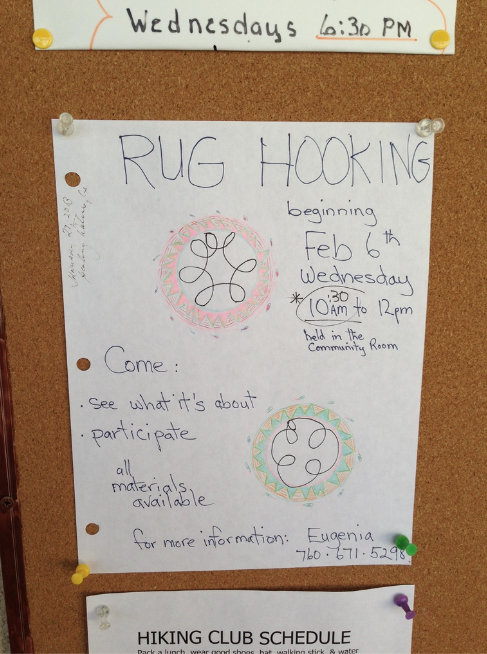 Wednesdays 6:30 PM
RUG HOOKING
beginning
Feb 6th
Wednesday
* 10:30 AM to 12pm
held in the
Community Room
Come:
· see what it's about
· participate
all
materials
available
for more information: Eugenia
760·671·5298
HIKING CLUB SCHEDULE
Pack a lunch, wear good shoes, hat, walking stick, & water